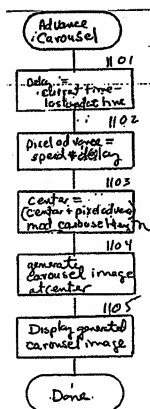 Advance
Carousel
1101
Delay =
current time-
last update time
1102
pixel advance =
speed * delay
1103
center =
(center + pixel advance)
mod carousel length
1104
generate
carousel image
at center
1105
Display generated
carousel image
Done